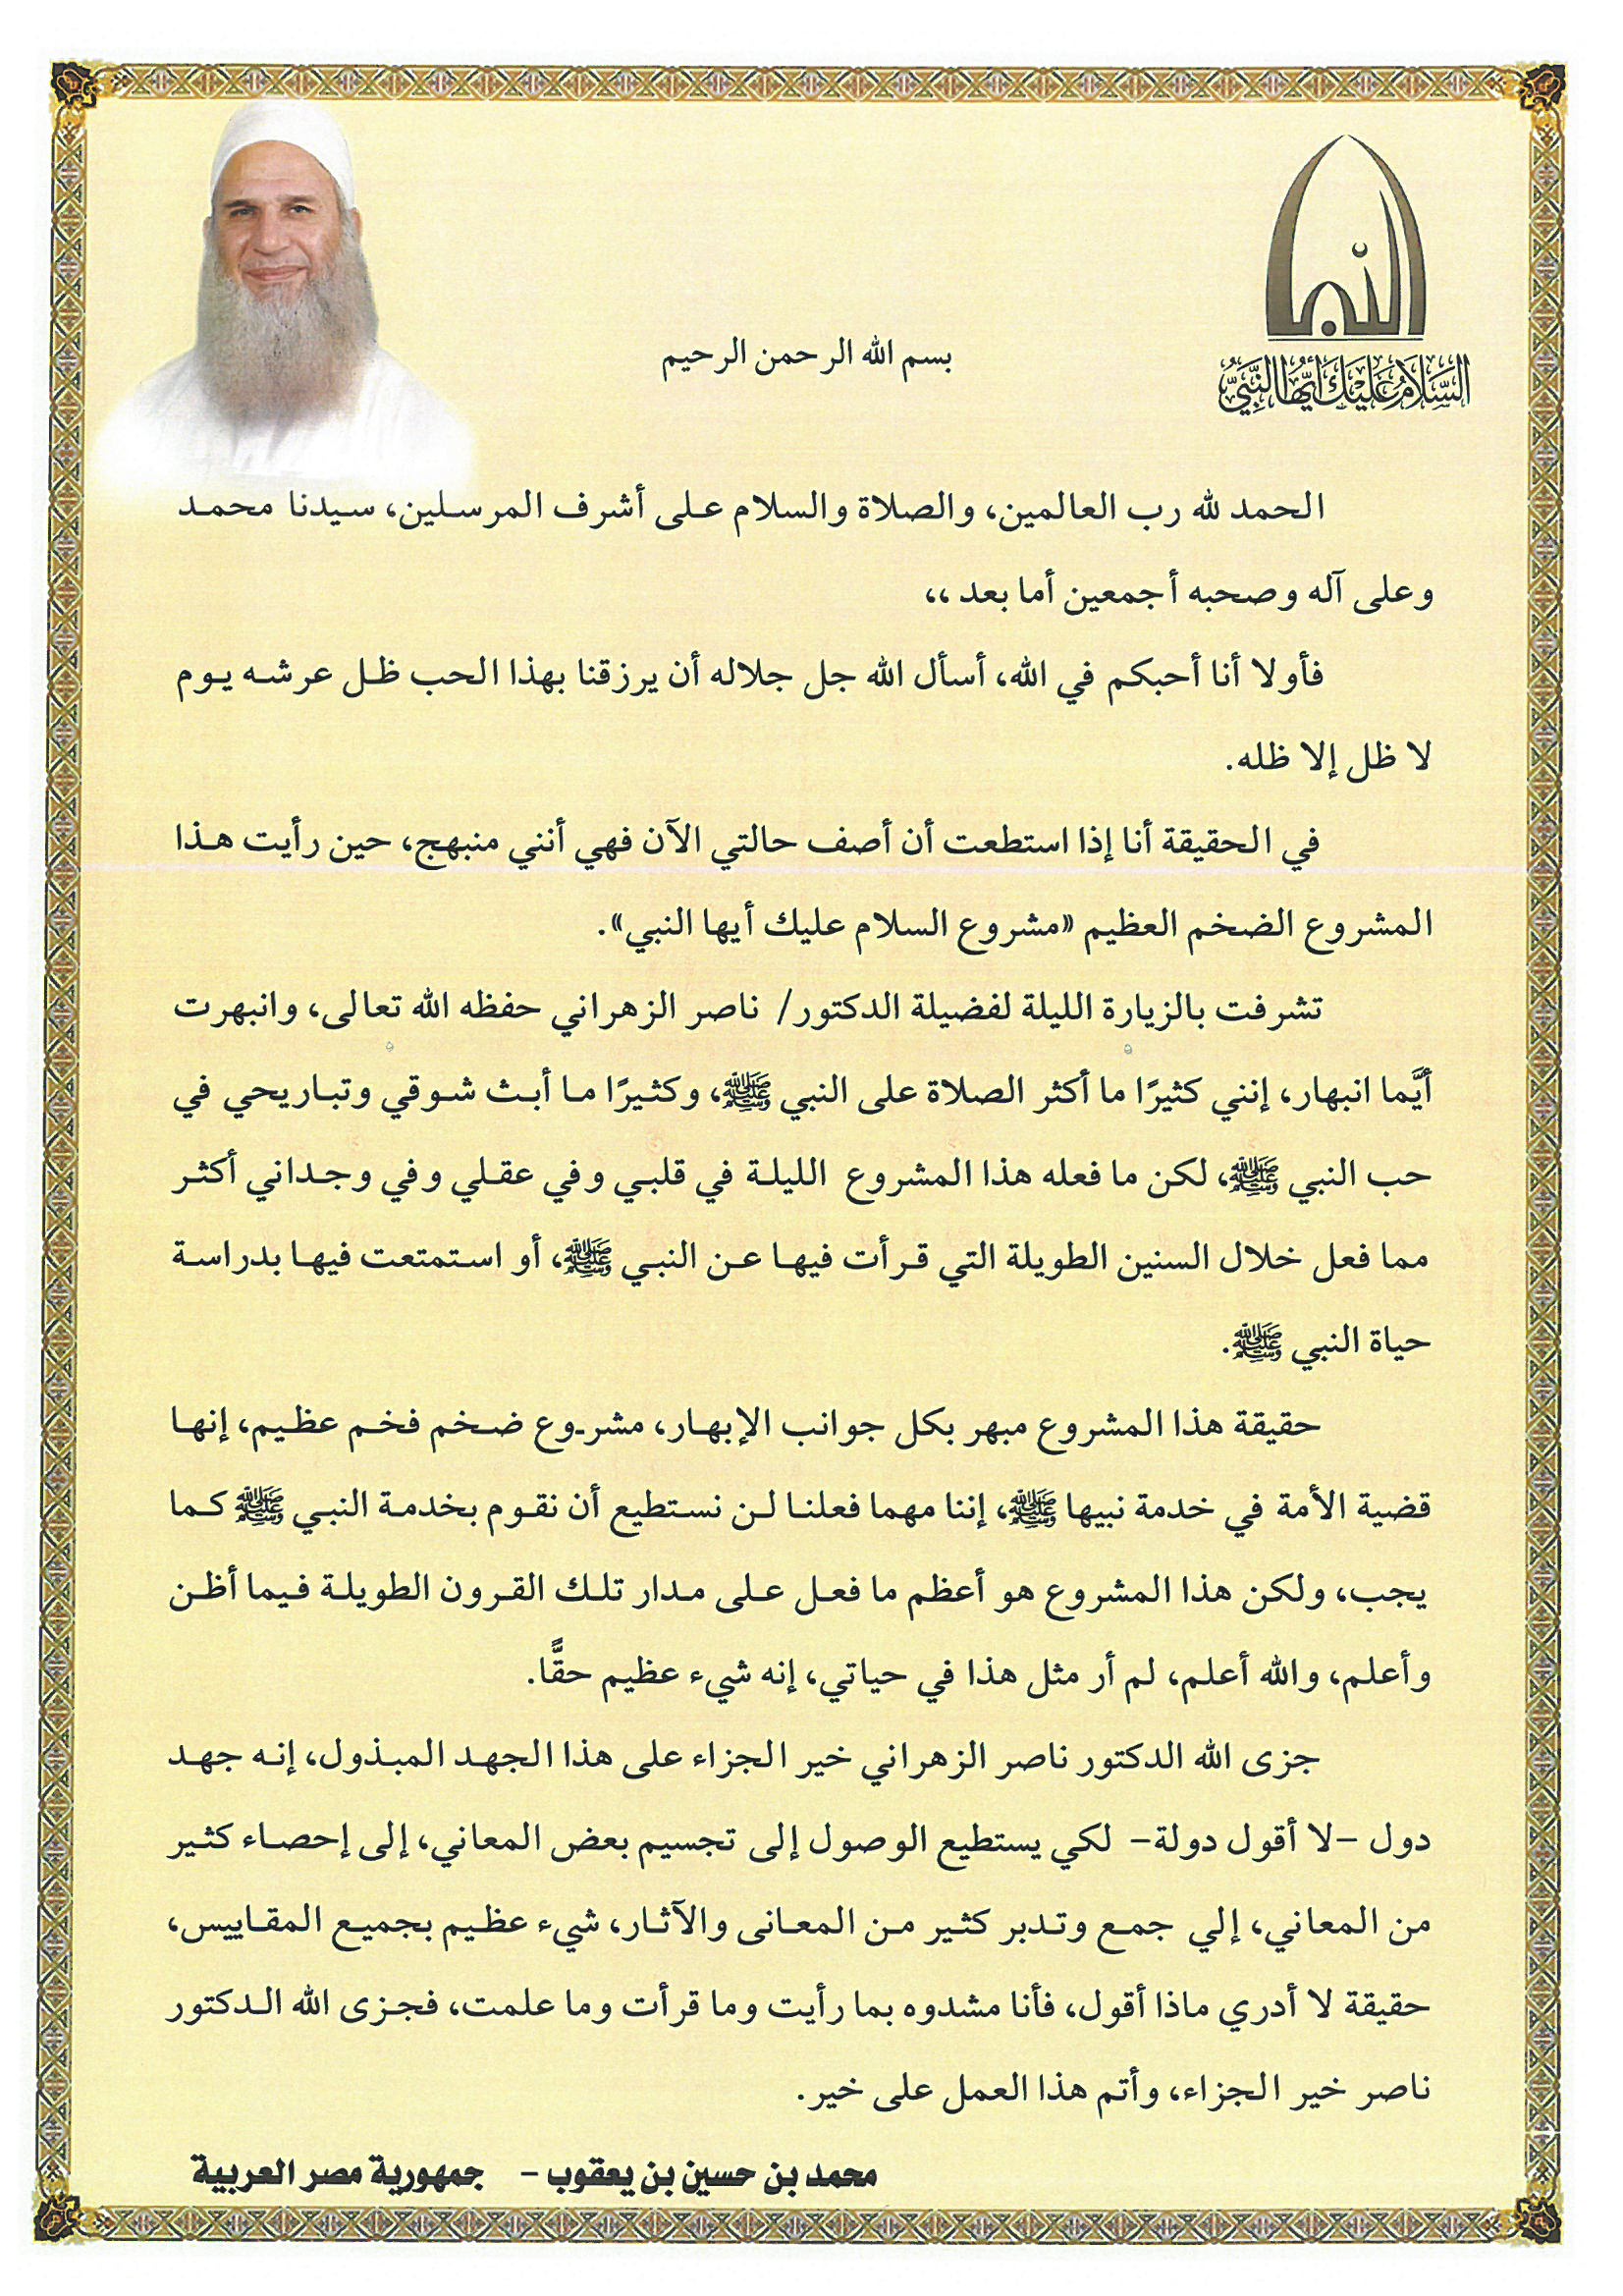 النبي
السلام عليك أيها النبي
بسم الله الرحمن الرحيم
الحمد لله رب العالمين، والصلاة والسلام على أشرف المرسلين، سيدنا محمد
وعلى آله وصحبه أجمعين أما بعد ،،
فأولا أنا أحبكم في الله، أسأل الله جل جلاله أن يرزقنا بهذا الحب ظل عرشه يوم
لا ظل إلا ظله.
في الحقيقة أنا إذا استطعت أن أصف حالتي الآن فهي أنني منبهج، حين رأيت هذا
المشروع الضخم العظيم «مشروع السلام عليك أيها النبي».
تشرفت بالزيارة الليلة لفضيلة الدكتور/ ناصر الزهراني حفظه الله تعالى، وانبهرت
أيَّما انبهار، إنني كثيرًا ما أكثر الصلاة على النبي ﷺ، وكثيرًا ما أبث شوقي وتباريحي في
حب النبي ﷺ، لكن ما فعله هذا المشروع الليلة في قلبي وفي عقلي وفي وجداني أكثر
مما فعل خلال السنين الطويلة التي قرأت فيها عن النبي ﷺ، أو استمتعت فيها بدراسة
حياة النبي ﷺ.
حقيقة هذا المشروع مبهر بكل جوانب الإبهار، مشروع ضخم فخم عظيم، إنها
قضية الأمة في خدمة نبيها ﷺ، إننا مهما فعلنا لن نستطيع أن نقوم بخدمة النبي ﷺ كما
يجب، ولكن هذا المشروع هو أعظم ما فعل على مدار تلك القرون الطويلة فيما أظن
وأعلم، والله أعلم، لم أر مثل هذا في حياتي، إنه شيء عظيم حقًّا.
جزى الله الدكتور ناصر الزهراني خير الجزاء على هذا الجهد المبذول، إنه جهد
دول -لا أقول دولة- لكي يستطيع الوصول إلى تجسيم بعض المعاني، إلى إحصاء كثير
من المعاني، إلي جمع وتدبر كثير من المعانى والآثار، شيء عظيم بجميع المقاييس،
حقيقة لا أدري ماذا أقول، فأنا مشدوه بما رأيت وما قرأت وما علمت، فجزى الله الدكتور
ناصر خير الجزاء، وأتم هذا العمل على خير.
محمد بن حسين بن يعقوب - جمهورية مصر العربية